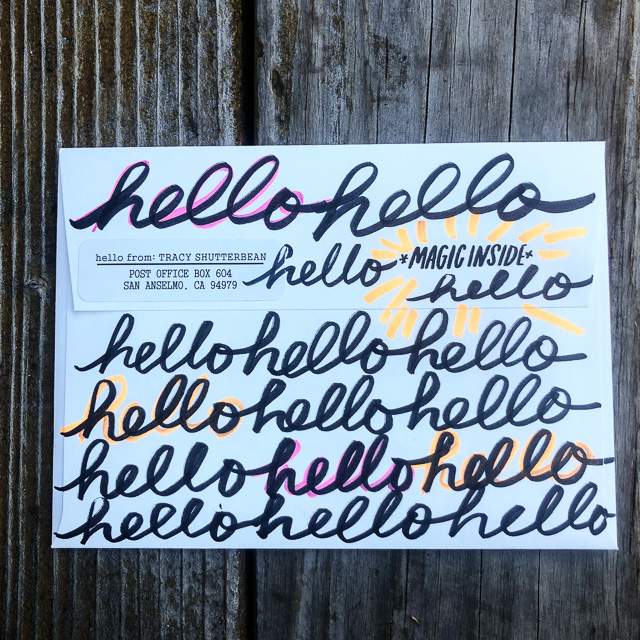 hello hello
hello from: TRACY SHUTTERBEAN
POST OFFICE BOX 604
SAN ANSELMO, CA 94979
hello
*MAGIC INSIDE*
hello
hello hello hello
hello hello hello
hello hello hello
hello hello hello